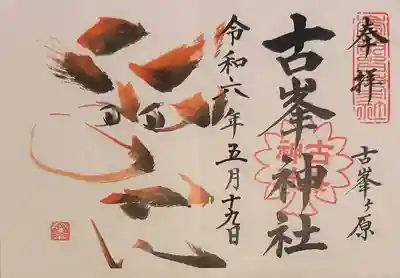 奉拝
古峯ヶ原
古峯神社
令和六年五月十九日